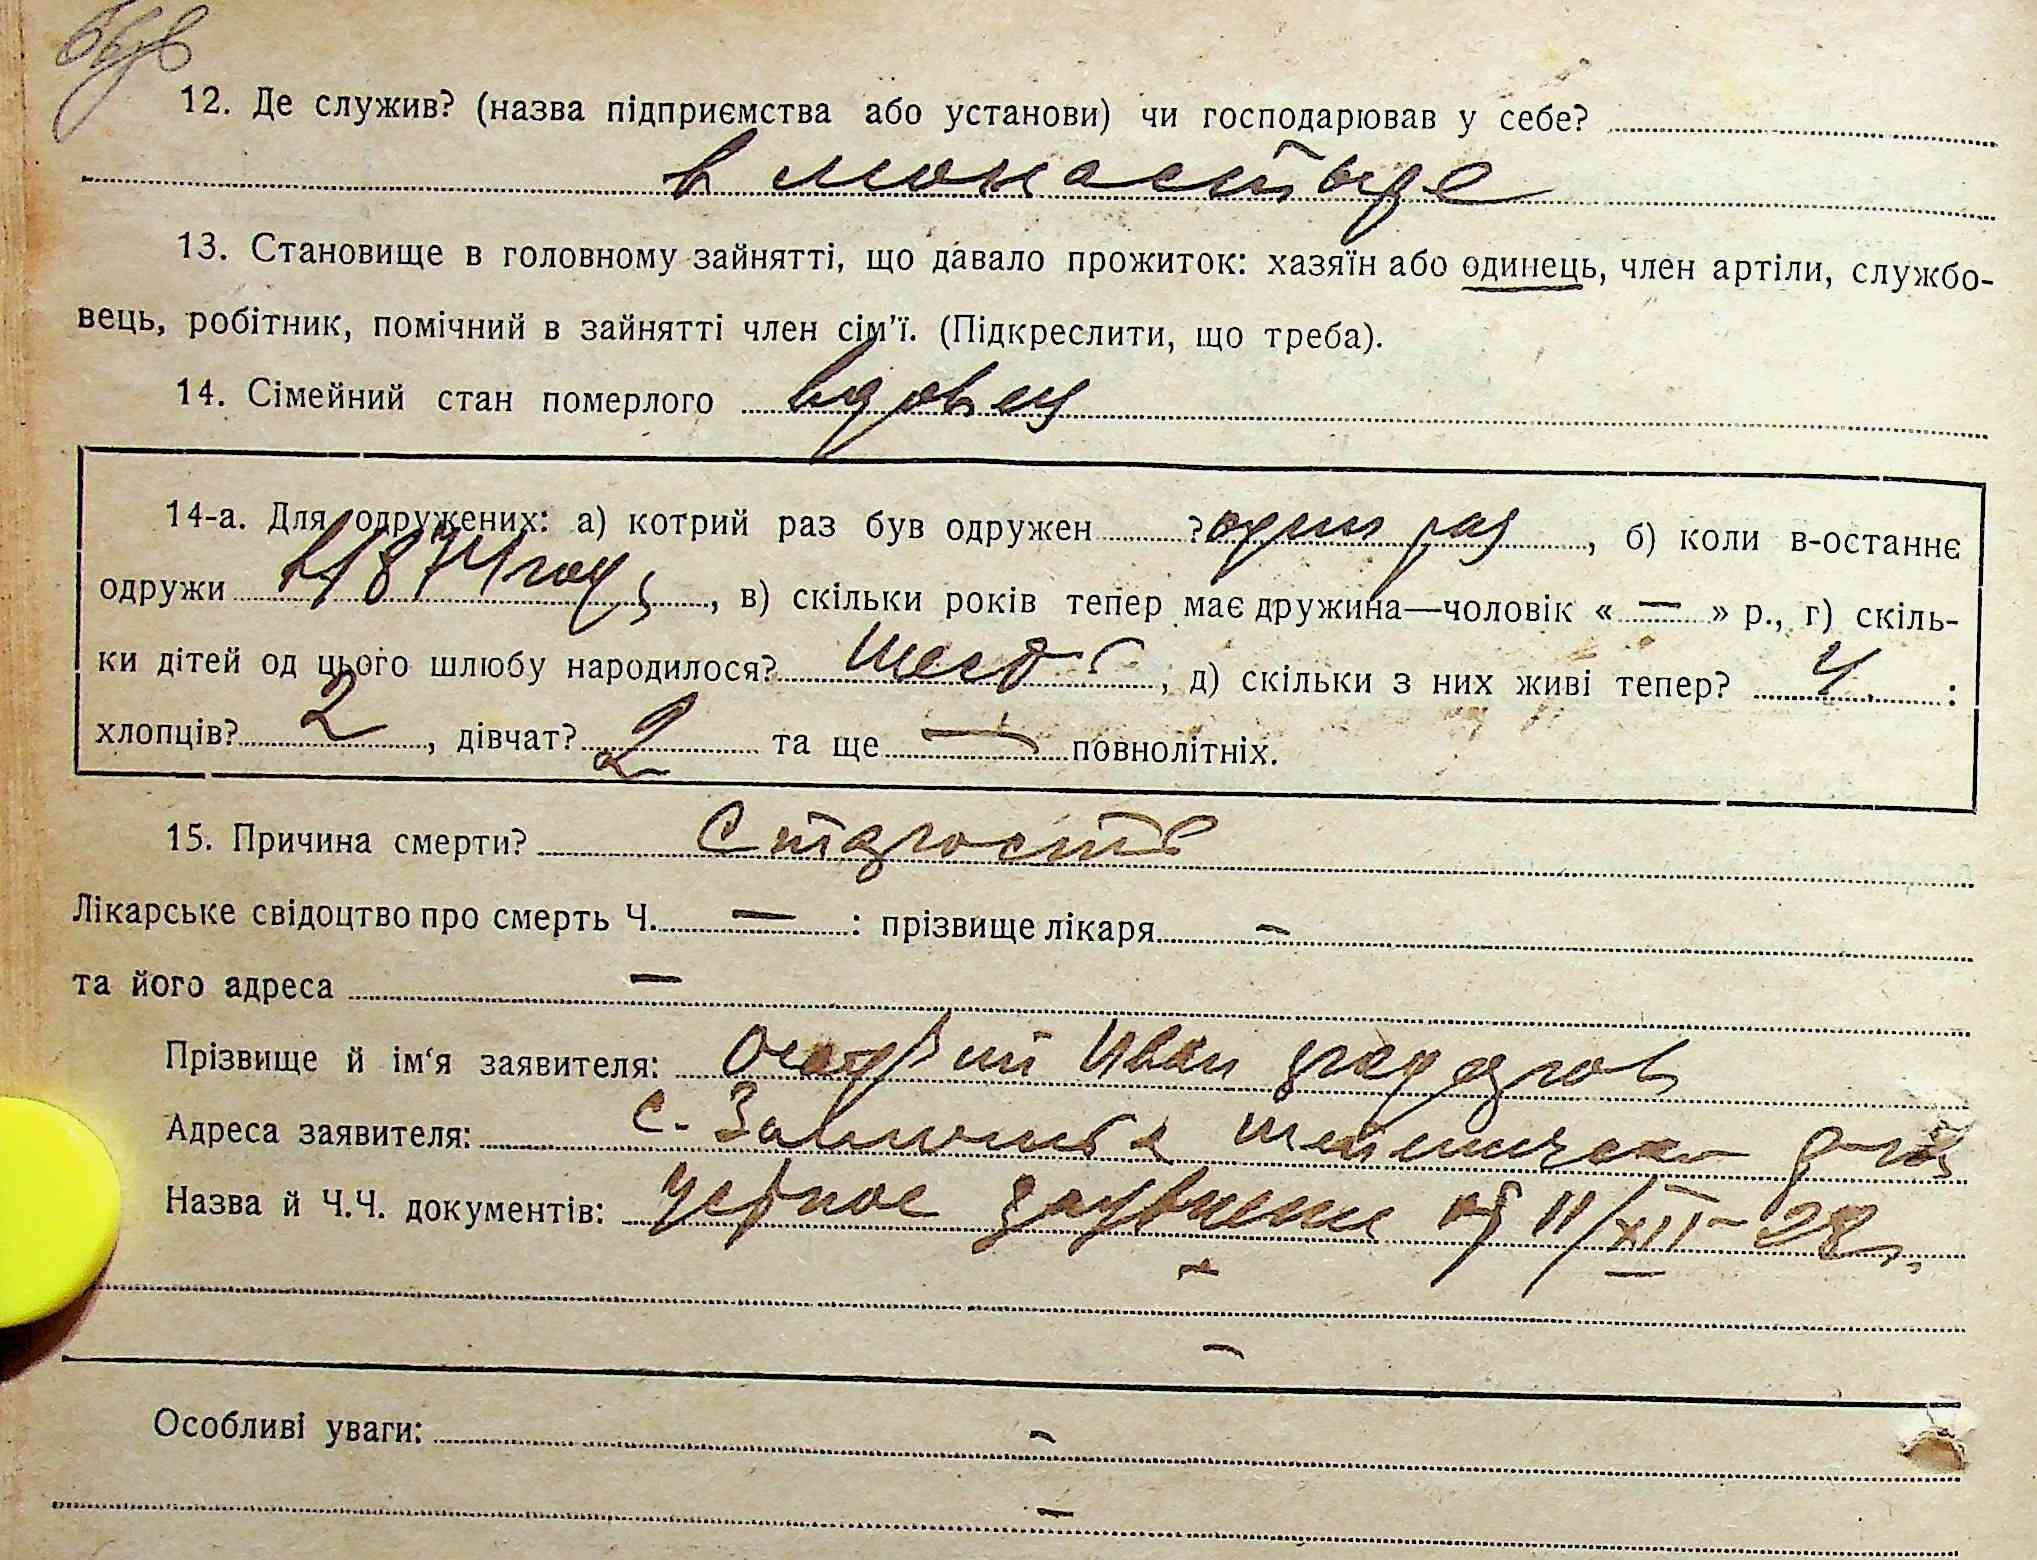 12. Де служив? (назва підприємства або установи) чи господарював у себе?
в монастыре
13. Становище в головному зайнятті, що давало прожиток: хазяїн або одинець, член артіли, службо-
вець, робітник, помічний в зайнятті член сім'ї. (Підкреслити, що треба).
14. Сімейний стан померлого вдовец
14-а. Для одружених: а) котрий раз був одружен ? один раз, б) коли в-останнє
одружи в 1874 году, в) скільки років тепер має дружина—чоловік « — » р., г) скіль-
ки дітей од цього шлюбу народилося? шесть, д) скільки з них живі тепер? 4 :
хлопців? 2, дівчат? 2 та ще — повнолітніх.
15. Причина смерти? Старость
Лікарське свідоцтво про смерть Ч. — : прізвище лікаря –
та його адреса —
Прізвище й ім'я заявителя: Иван
Адреса заявителя: с.
Назва й Ч.Ч. документів: устное заявление от 11/XII–28 г.
–
–
Особливі уваги: –
–